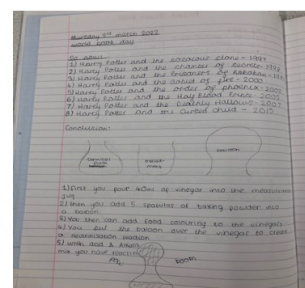 Thursday 3rd march 2022
World book day
1) Harry Potter and the Socorour stone - 1997
2) Harry Potter and the chamber of Secrets - 1998
3) Harry Potter and the Prisoner of Azkaban - 
4) Harry Potter and the Goblet of fire - 2000
5) Harry Potter and the order of phoenix - 2003
6) Harry Potter and the Half Blood Prince - 2005
7) Harry Potter and the Deathly Hallows - 2007
8) Harry Potter and the Cursed child - 2016
Conclusion:
1) First you pour 40ml of vinegar into the measuring
jug
2) then you add 5 spatulas of baking powder into
a baloon.
3) You then can add food colouring to the vinegar
4) You put the baloon over the vinegar to create
a neutralisation reaction
5) With acid &
mix you have reaction
baloon